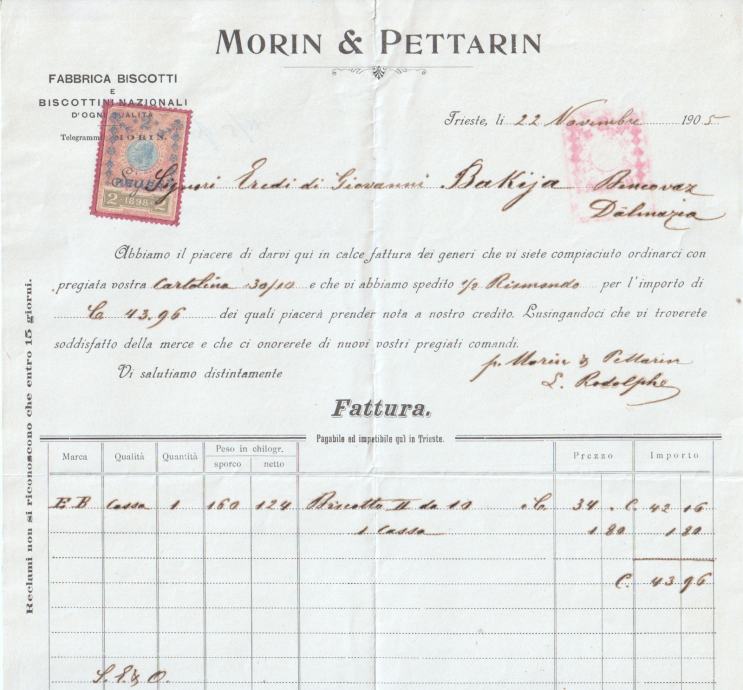 MORIN & PETTARIN
FABBRICA BISCOTTI
E
BISCOTTINI NAZIONALI
D'OGNI QUALITÀ
Telegrammi MORIN.
Trieste, li 22 Novembre 1905
2
2 1898 2
Signori Eredi di Giovanni Bakija Bencovaz
Dalmazia
Abbiamo il piacere di darvi qui in calce fattura dei generi che vi siete compiaciuto ordinarci con
pregiata vostra Cartolina 30/10 e che vi abbiamo spedito Rismondo per l'importo di
C 43.96 dei quali piacerà prender nota a nostro credito. Lusingandoci che vi troverete
soddisfatto della merce e che ci onorerete di nuovi vostri pregiati comandi.
Vi salutiamo distintamente
p. Morin & Pettarin
L. Rodolphe
Fattura.
Pagabile ed impetibile quì in Trieste.
Marca Qualità Quantità Peso in chilogr. Prezzo Importo
sporco netto
EB Cassa 1 160 124 Biscotto II da 10 C 34 . C. 42 16
1 Cassa 1 80 1 80
C. 43 96
S. E. & O.
Reclami non si riconoscono che entro 15 giorni.